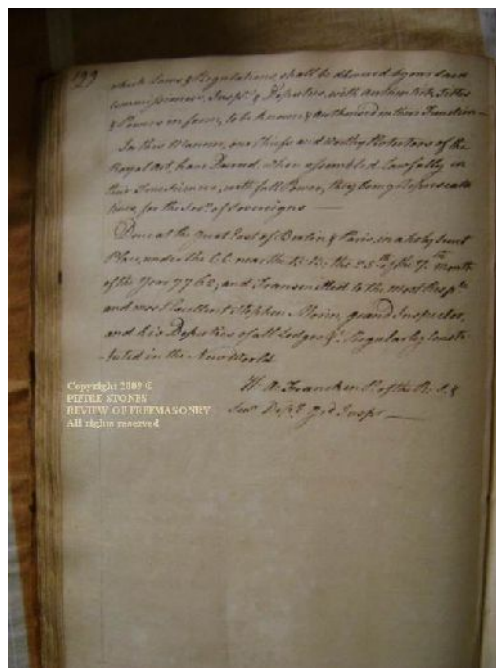 199
which Laws & Regulations shall be observed by our said
Commissioners, Insp.rs & Deputies, with Authentick Titles
& Powers in form, to be known & Authorised in their Function
In this Manner, our Chiefs and Worthy Protectors of the
Royal Art, have Decreed, when assembled Lawfully in
their true Science, with full Power, they being Representa
tives for the of Sovereigns
Done at the Great East of Berlin & Paris, in a holy
Place, under the C.C. near the B.B. the 25th of the 7th month
of the Year 7762, and Transmitted to the most
and most Excellent Stephen Morin, grand Inspector,
and his Deputies of all Lodges &c. Regularly Consti-
-tuted in the New World.
H. A. Francken P. of the R. S. &
Insp.r
Copyright 2009 ©
PIETRE-STONES
REVIEW OF FREEMASONRY
All rights reserved